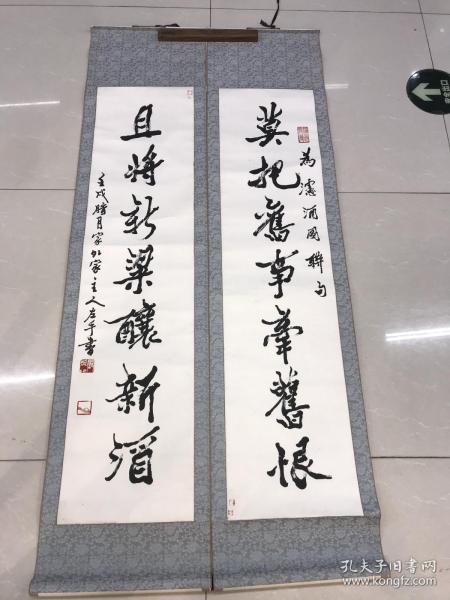 莫把舊事牽舊恨
為濾酒圖聯句
且將新粱釀新酒
壬戌臘月家外家主人左平書
孔夫子旧书网
www.kongfz.com